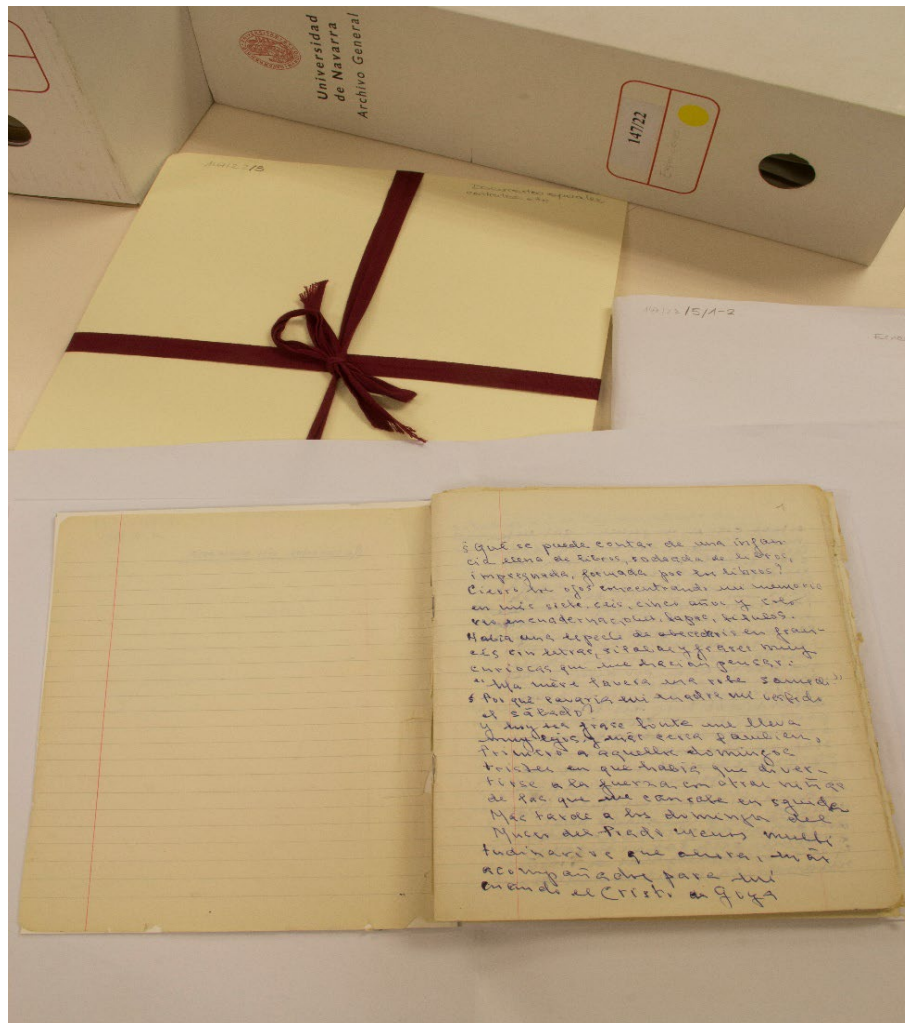 Universidad
de Navarra
Archivo General
147/22
/3
Documentos
/5/1-2
1
¿Qué se puede contar de una infan-
cia llena de libros, rodeada de libros,
impregnada, formada por los libros?
Cierro los ojos concentrando mi memoria
en mis siete, seis, cinco años y solo
veo encuadernaciones, hojas, títulos.
Había una especie de abecedario en fran-
cés con letras, sílabas y frases muy
curiosas que me hacían pensar:
"Ma mère lavera ma robe samedi."
¿Por qué lavaría mi madre mi vestido
el sábado?
y hoy esa frase tonta me lleva
muy lejos y más cerca también,
Primero a aquellos domingos
tristes en que había que diver-
tirse a la fuerza con otras niñas
de las que me cansaba en seguida
Mas tarde a los domingos del
Museo del Prado menos multi
tudinarios que ahora, más
acompañados para mí
cuando el Cristo de Goya